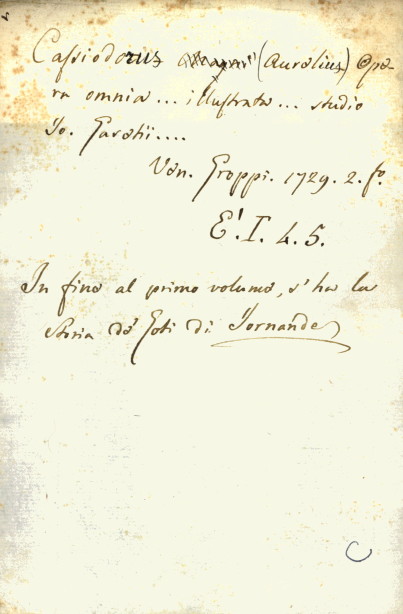 Cassiodorus (Aurelius) Ope-
ra omnia ... illustrata ... studio
Jo. Garetii....
Ven. Groppi. 1729. 2. fo.
E'. I. 4. 5.
In fine al primo volume, s'ha la
Storia de' Goti di Jornande